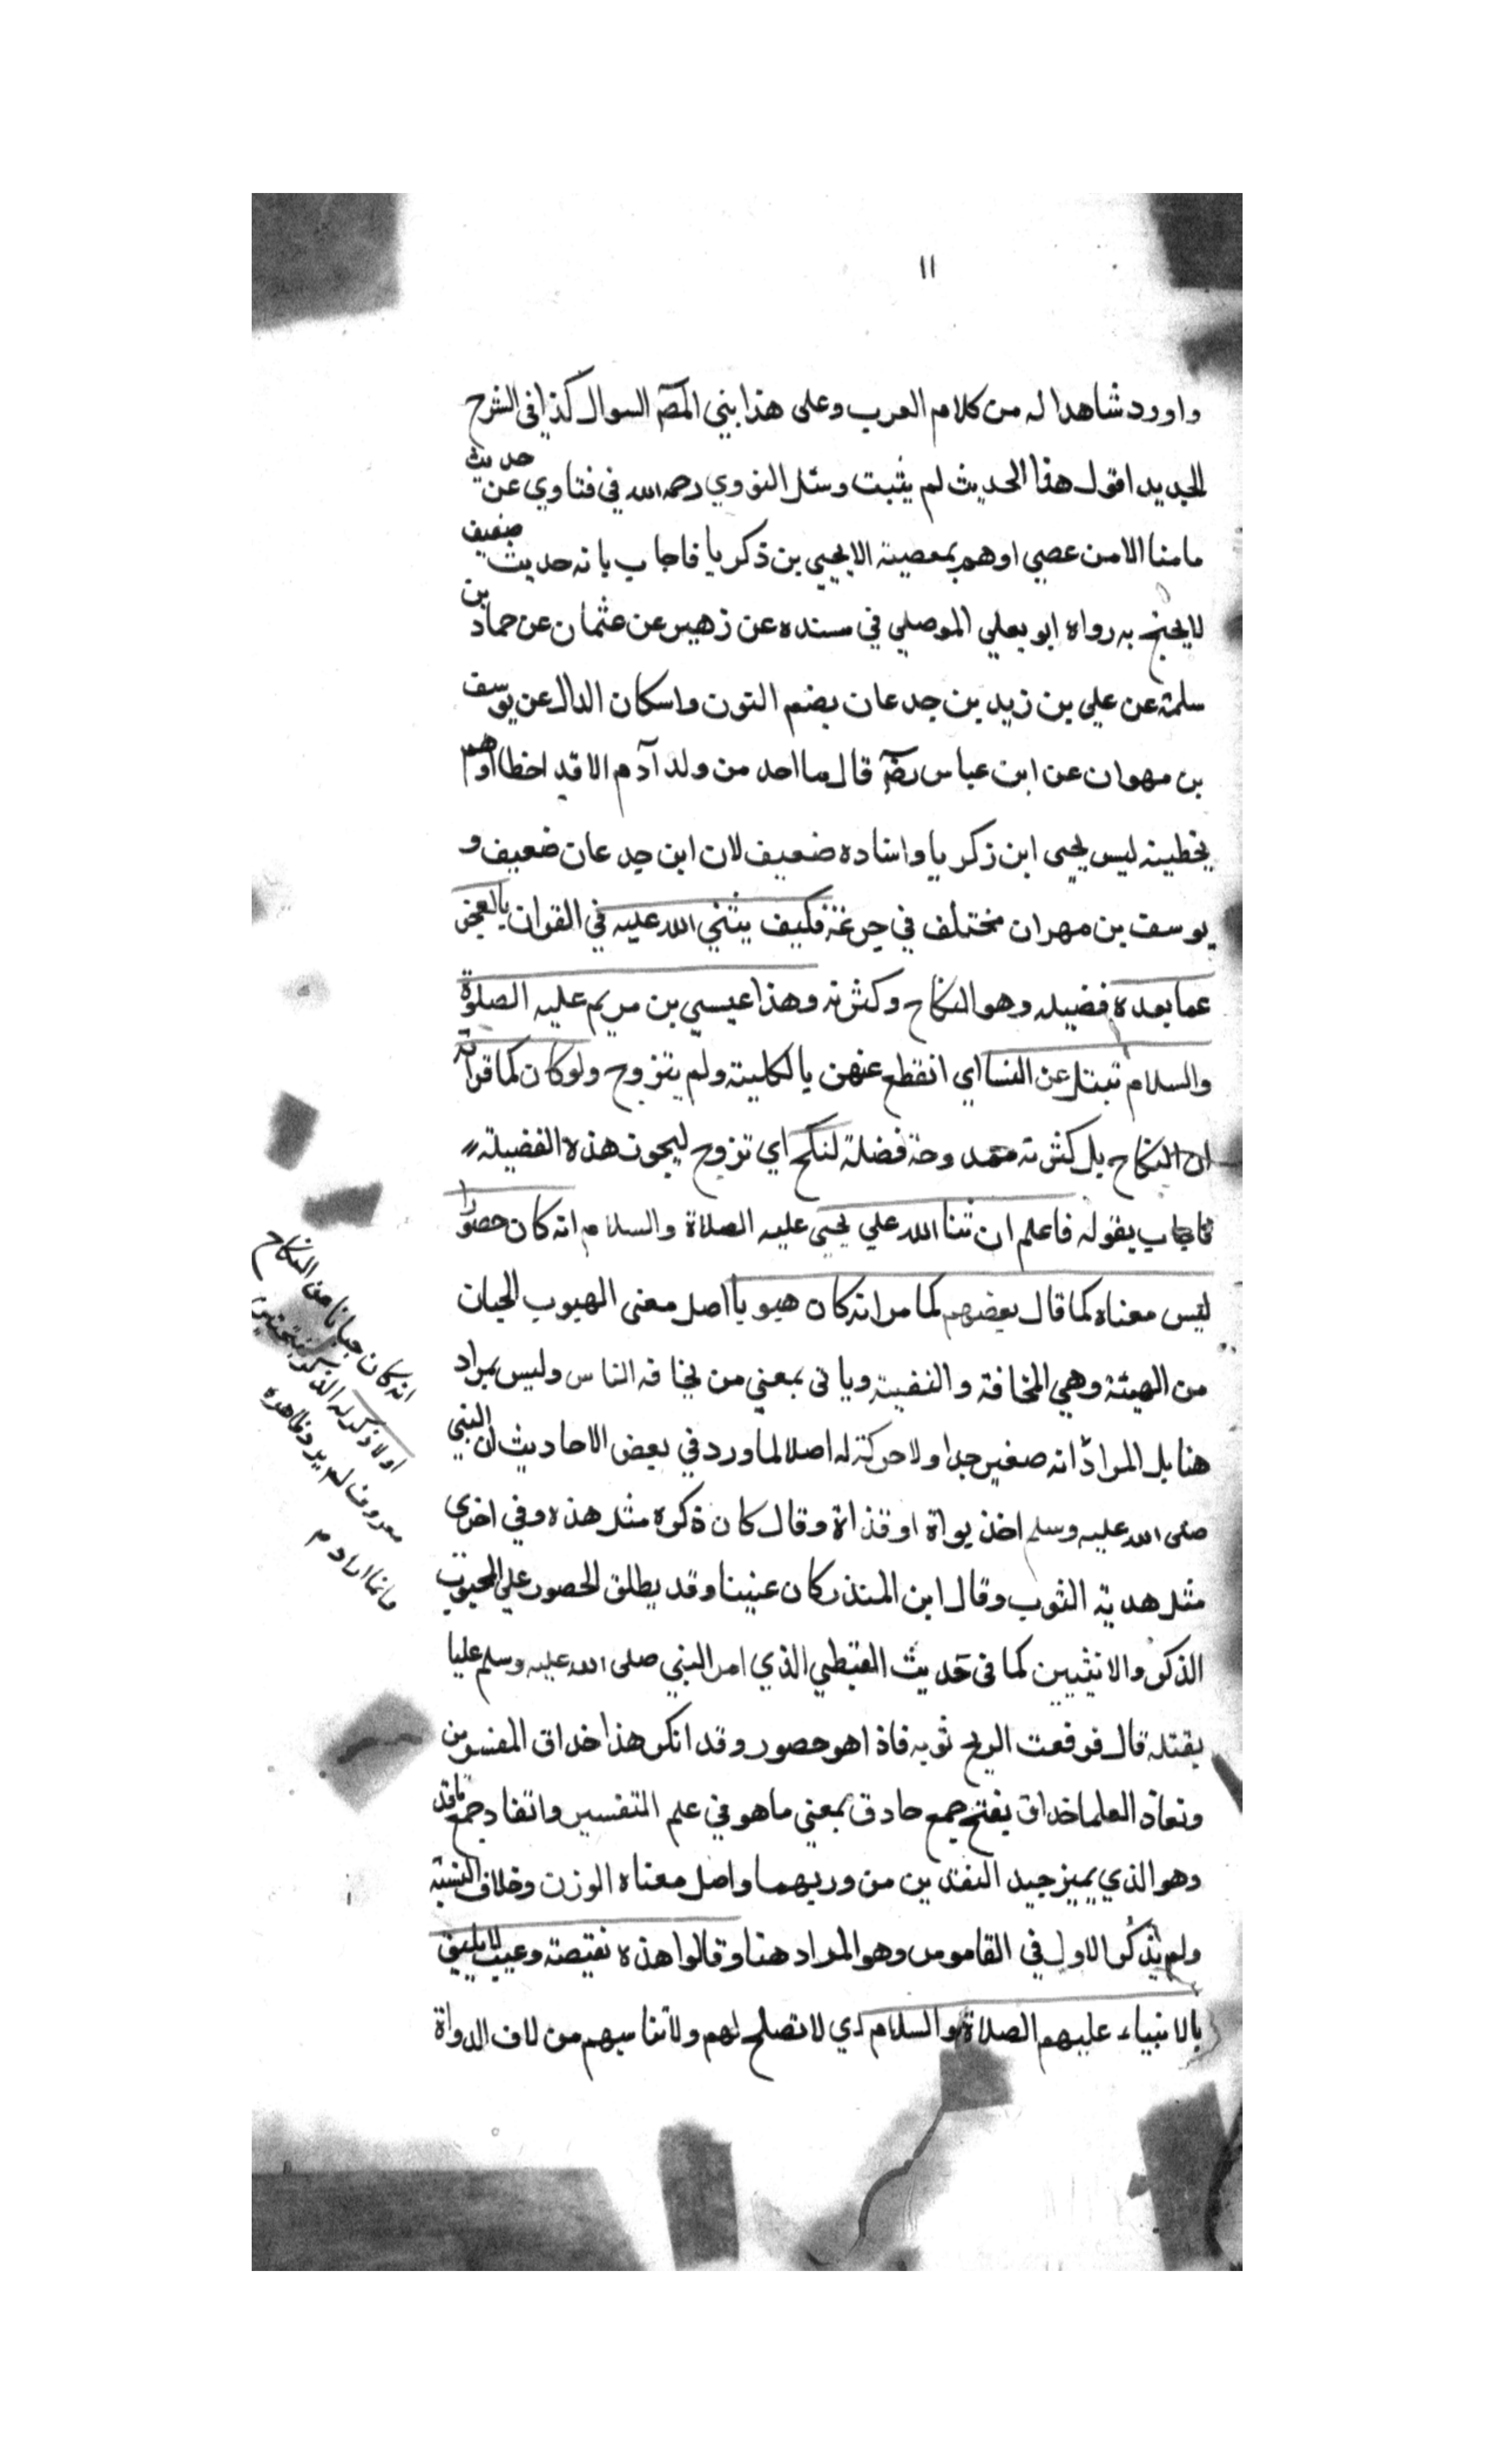 ١١
واورد شاهدا له من كلام العرب وعلى هذا بني المصّ السوال كذا في الشرح
الجديد اقول هذا الحديث لم يثبت وسئل النووي رحمه الله في فتاوي عن حديث
مامنا الا من عصي اوهم بمعصية الا يحيي بن زكريا فاجاب بانه حديث ضعيف
لايحتج به رواه ابو يعلي الموصلي في مسنده عن زهير عن عثمان عن حماد بن
سلمة عن علي بن زيد بن جدعان بضم النون واسكان الدال عن يوسف
بن مهوان عن ابن عباس رضّ قال ما احد من ولد آدم الا قد اخطا اوهم
بخطيئة ليس يحيى ابن زكريا واسناده ضعيف لان ابن جدعان ضعيف و
يوسف بن مهران مختلف في جرعة فكيف يثني الله عليه في القران بالعجز
عما بعده فضيله وهو النكاح وكثرته وهذا عيسي بن مريم عليه الصلوة
والسلام تبتل عن النسا اي انقطع عنهن بالكلية ولم يتزوج ولوكان كما قراته
ان النكاح بل كثرته ممدوحة فضلة لنكح اي تزوج ليحوت هذه الفضيلة
فاجاب بقوله فاعلم ان ثنا الله علي يحيى عليه الصلاة والسلام انه كان حصورا
ليس معناه كما قال بعضهم كما مر انه كان هيوبا اصل معنى الهيوب الجبان
من الهيئة وهي المخافة والنفيبة وياتى بمعني من يخافه الناس وليس بمراد
هنا بل المرادّ انه صغير جدا ولا حركة له اصلا لما ورد في بعض الاحاديث ان النبي
صلى الله عليه وسلم اخذ يواة او قذاة وقال كان ذكره مثل هذه وفي اخرى
مثل هدبة الثوب وقال ابن المنذر كان عنينا وقد يطلق الحصور علي المجبوب
الذكر والانثيين كما في حديث القبطي الذي امر النبي صلى الله عليه وسلم عليا
بقتله قال فرفعت الريح ثوبه فاذا هو حصور وقد انكر هذا حذاق المفسرين
ونعاذ العلما حذاق بفتح جمع حاذق بمعني ماهو في علم التفسير وانتفاد جمع ناقد
وهو الذي يميز جيد النقدين من وريهما واصل معناه الوزن وخلاف النسبة
ولم يذكر الاول في القاموس وهو المراد هنا وقالوا هذه نقيصة وعيب لا يليق
بالانبياء عليهم الصلاة والسلام اي لاتصلح لهم ولاتناسبهم من لاف الدواة
انه كان جبانا من النكاح
او لا ذكر له الذكر بفتحتين
معروف لم يرد ظاهره
وانما اراد م